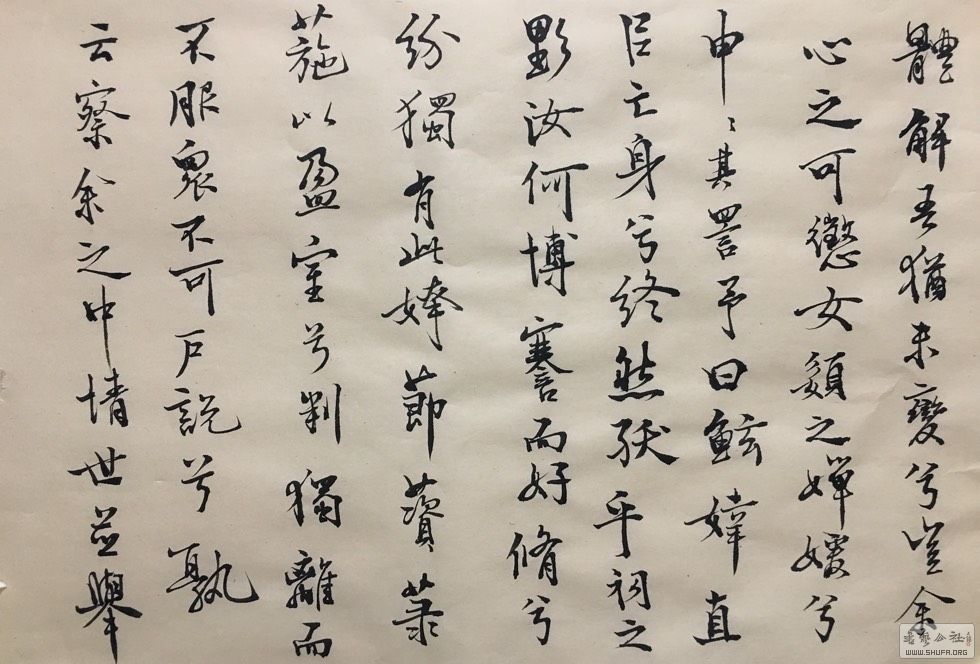 體解吾猶未變兮豈余
心之可懲女嬃之嬋媛兮
申〻其詈予曰鮌婞直
㠯亡身兮終然殀乎羽之
野汝何博謇而好脩兮
紛獨有此姱節薋菉
葹以盈室兮判獨離而
不服衆不可戶說兮孰
云察余之中情世並舉
WWW.SHUFA.ORG